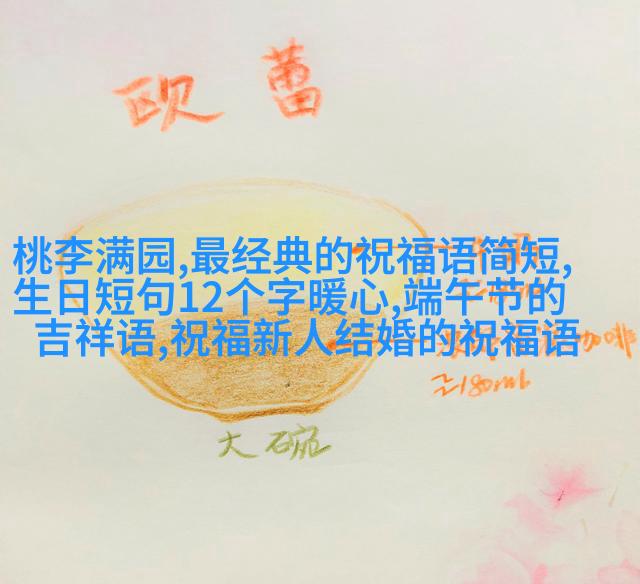 欧 蕾
桃李满园,最经典的祝福语简短,
生日短句12个字暖心,端午节的
吉祥语,祝福新人结婚的祝福语
咖啡
180ml
大碗